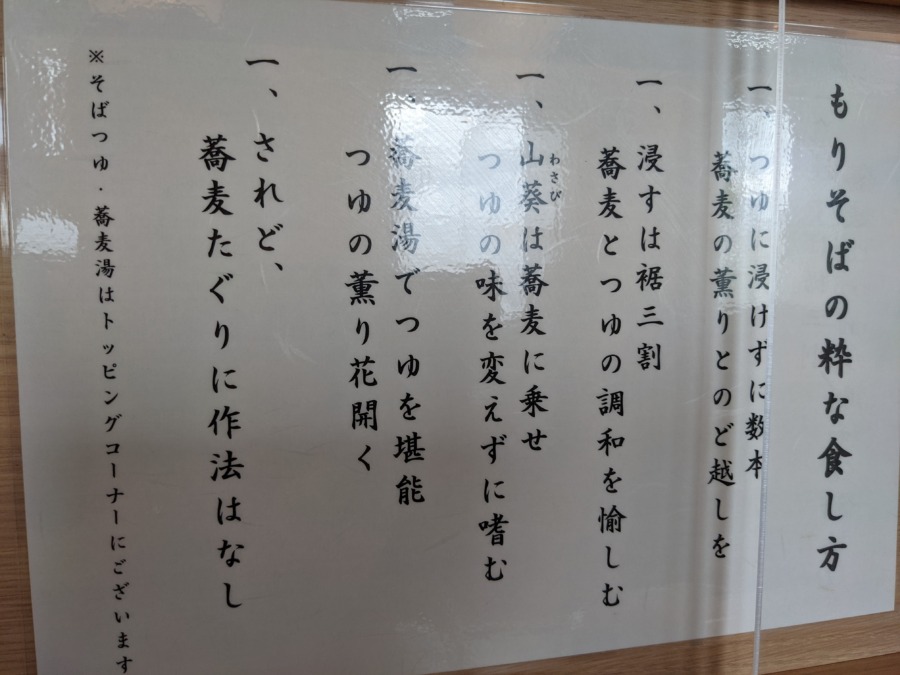 もりそばの粋な食し方
一、つゆに浸けずに数本
蕎麦の薫りとのど越しを
一、浸すは裾三割
蕎麦とつゆの調和を愉しむ
一、山葵は蕎麦に乗せ
わさび
つゆの味を変えずに嗜む
一、蕎麦湯でつゆを堪能
つゆの薫り花開く
一、されど、
蕎麦たぐりに作法はなし
※そばつゆ・蕎麦湯はトッピングコーナーにございます